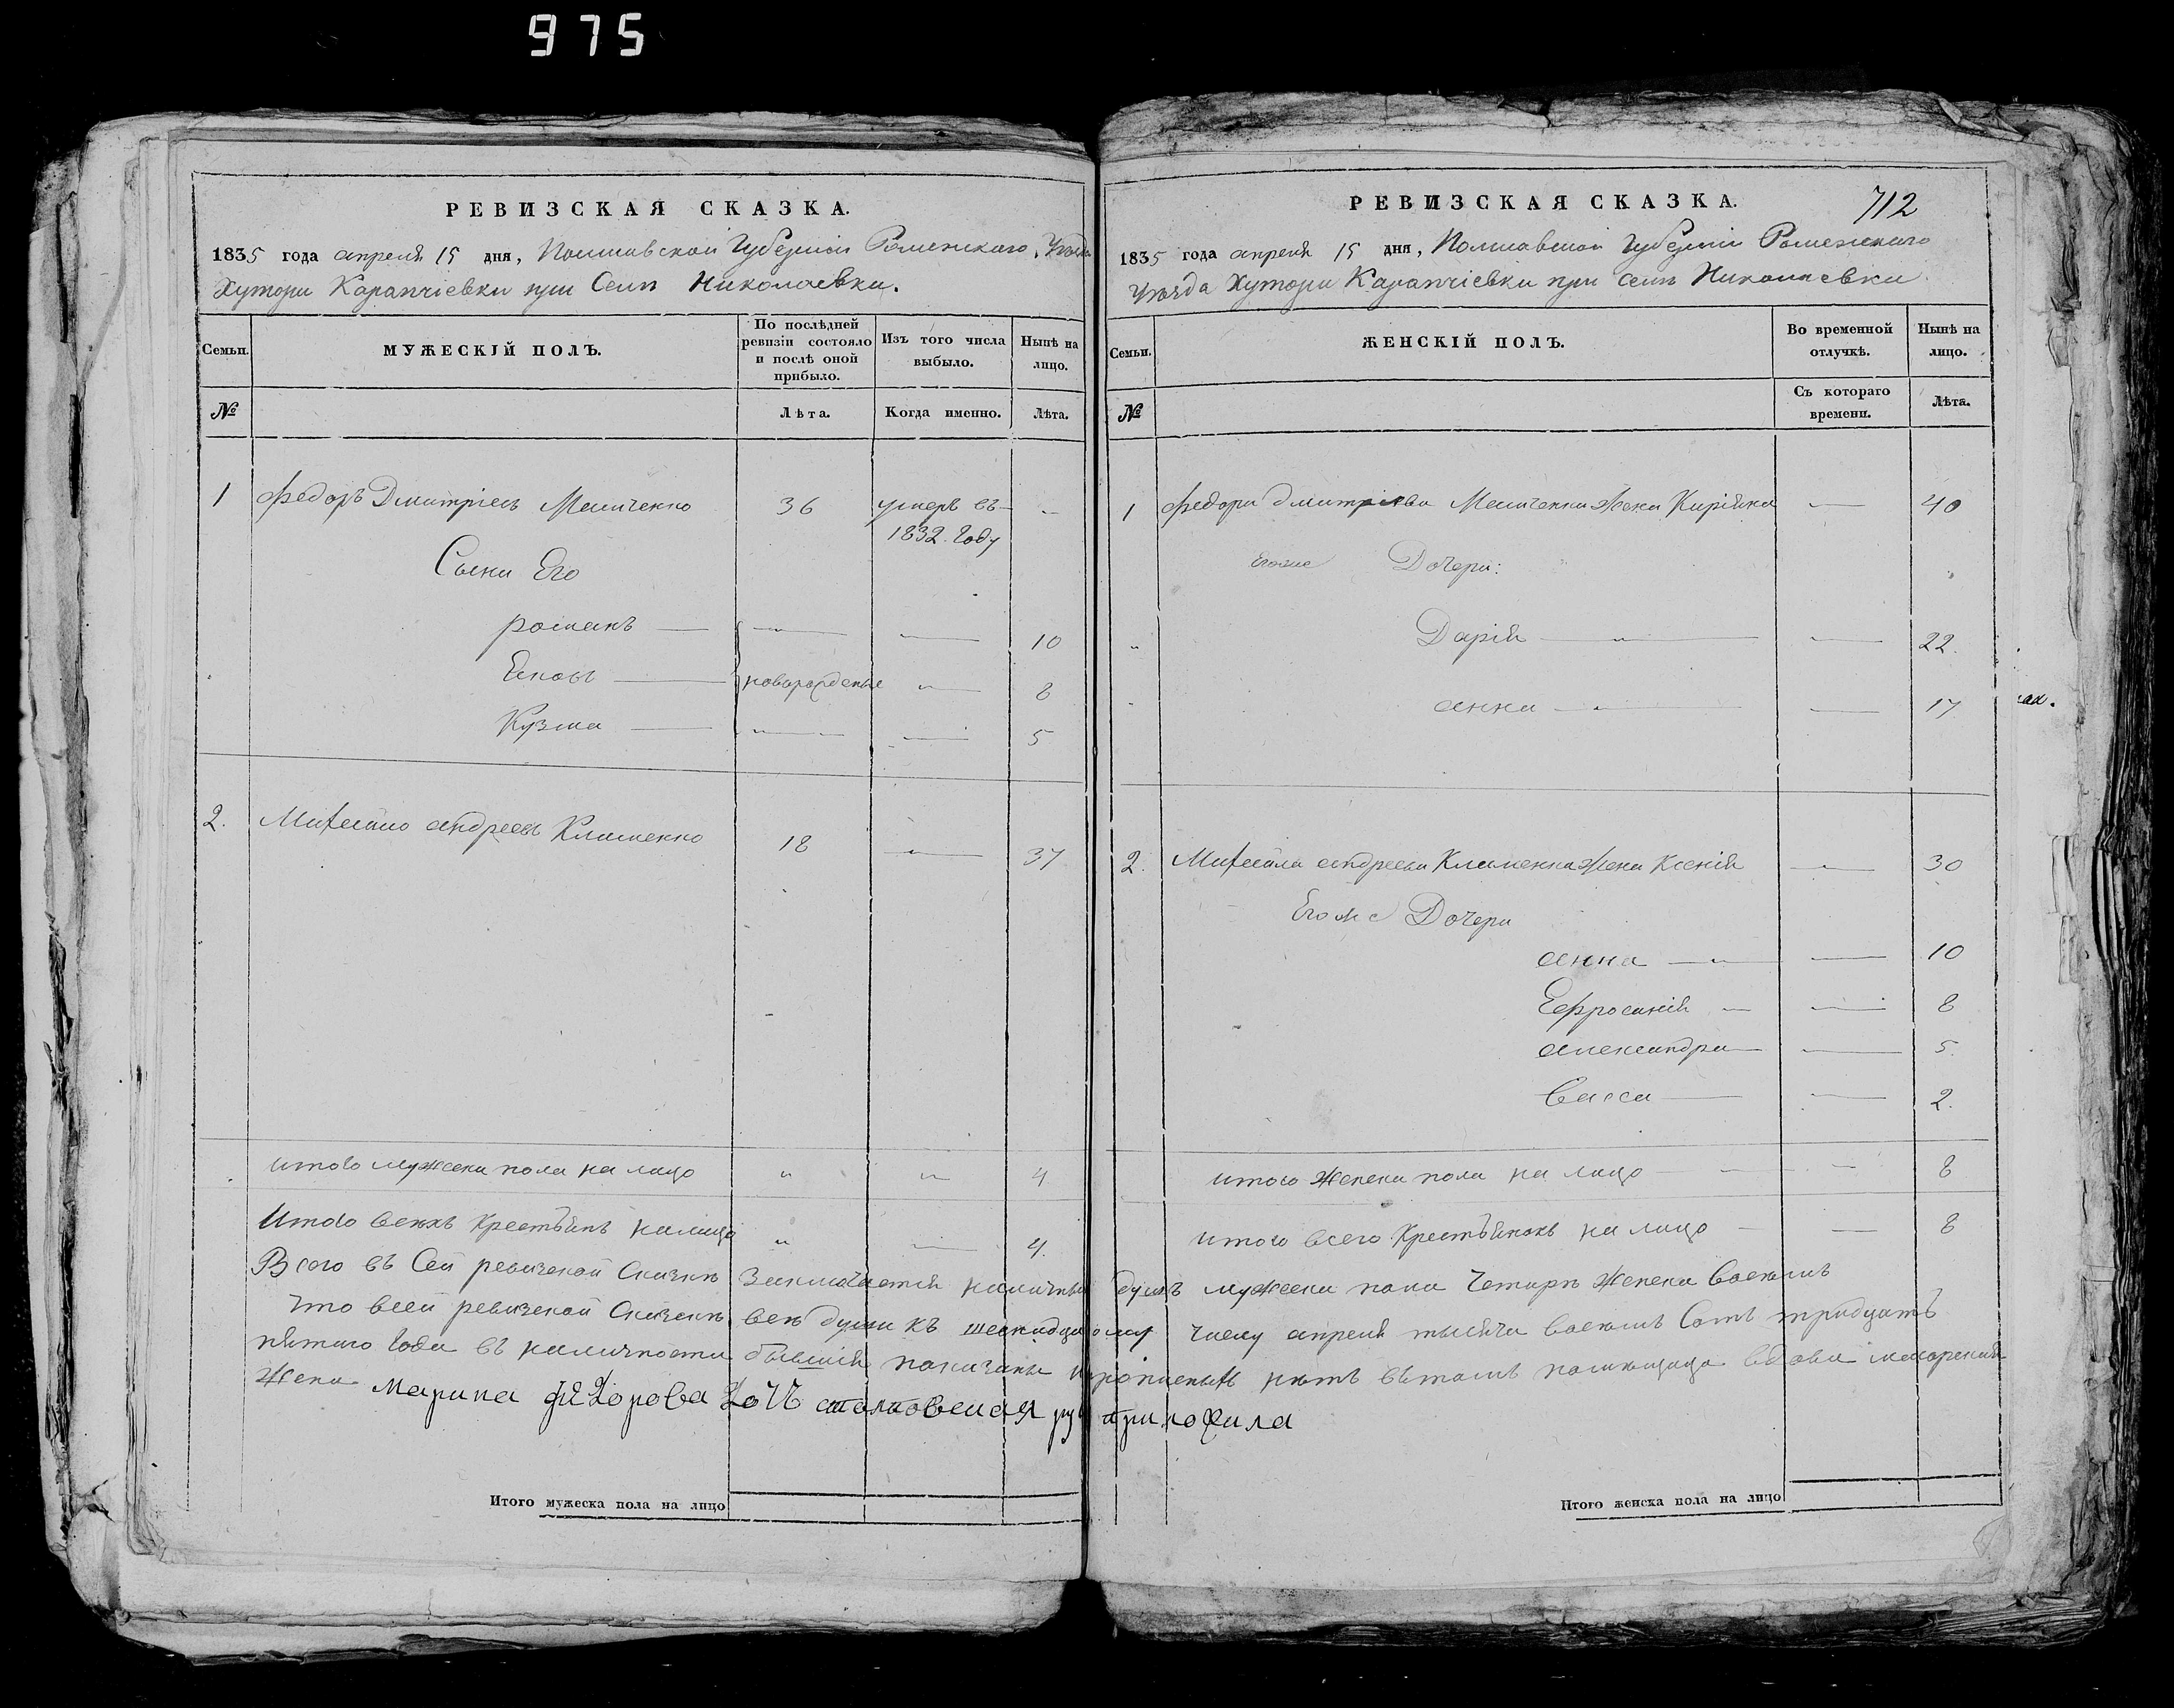 975
РЕВИЗСКАЯ СКАЗКА.
1835 года апреля 15 дня, Полтавской Губерніи Роменского Уезда
Хутора Карапчіевки при Селѣ Николаевки.
Семьи. МУЖЕСКІЙ ПОЛЪ. По послѣдней ревизіи состояло и послѣ оной прибыло. Изъ того числа выбыло. Нынѣ на лицо.
№ Лѣта. Когда именно. Лѣта.
1 Федоръ Дмитріевъ 36 умеръ въ —
1832. Году
Сыни Его
романъ — — — 10
Яковъ — новорожденые — 8
Кузма — — — 5
2. Михайло андреевъ Клименко 18 — 37
итого мужеска пола на лицо " " 4
Итого всехъ Крестьянъ налицо " — 4.
Всего въ Сей ревизской Сказкѣ Заключается наличныхъ
Что всей ревизской Сказкѣ всѣ души къ
пятого Года въ наличности бывшія показаны
Жена Марина Федорова дочь руку
Итого мужеска пола на лицо
712
РЕВИЗСКАЯ СКАЗКА.
1835 года апреля 15 дня, Полтавской Губерніи Роменскаго
Уѣзда Хутора Карапчіевки при Селѣ Николаевки
Семьи. ЖЕНСКІЙ ПОЛЪ. Во временной отлучкѣ. Нынѣ на лицо.
№ Съ котораго времени. Лѣта.
1 Федора дмитріева Жена — 40
Егоже Дочери:
" Дарія — " — — 22.
" анна — — 17
2. Михайла андреева Клименка Жена Ксенія — 30
Егоже Дочери
анна — — 10
Ефросинія — — 8
александра — — 5.
Васса — — 2.
итого Женска пола на лицо — — 8
итого всего Крестьянокъ на лицо — — 8
душъ мужеска пола Четыри Женска Восемъ
числу апреля тысяча восемъ Сотъ тридцать
нѣтъ вътомъ помѣщица вдова
приложила
Итого женска пола на лицо